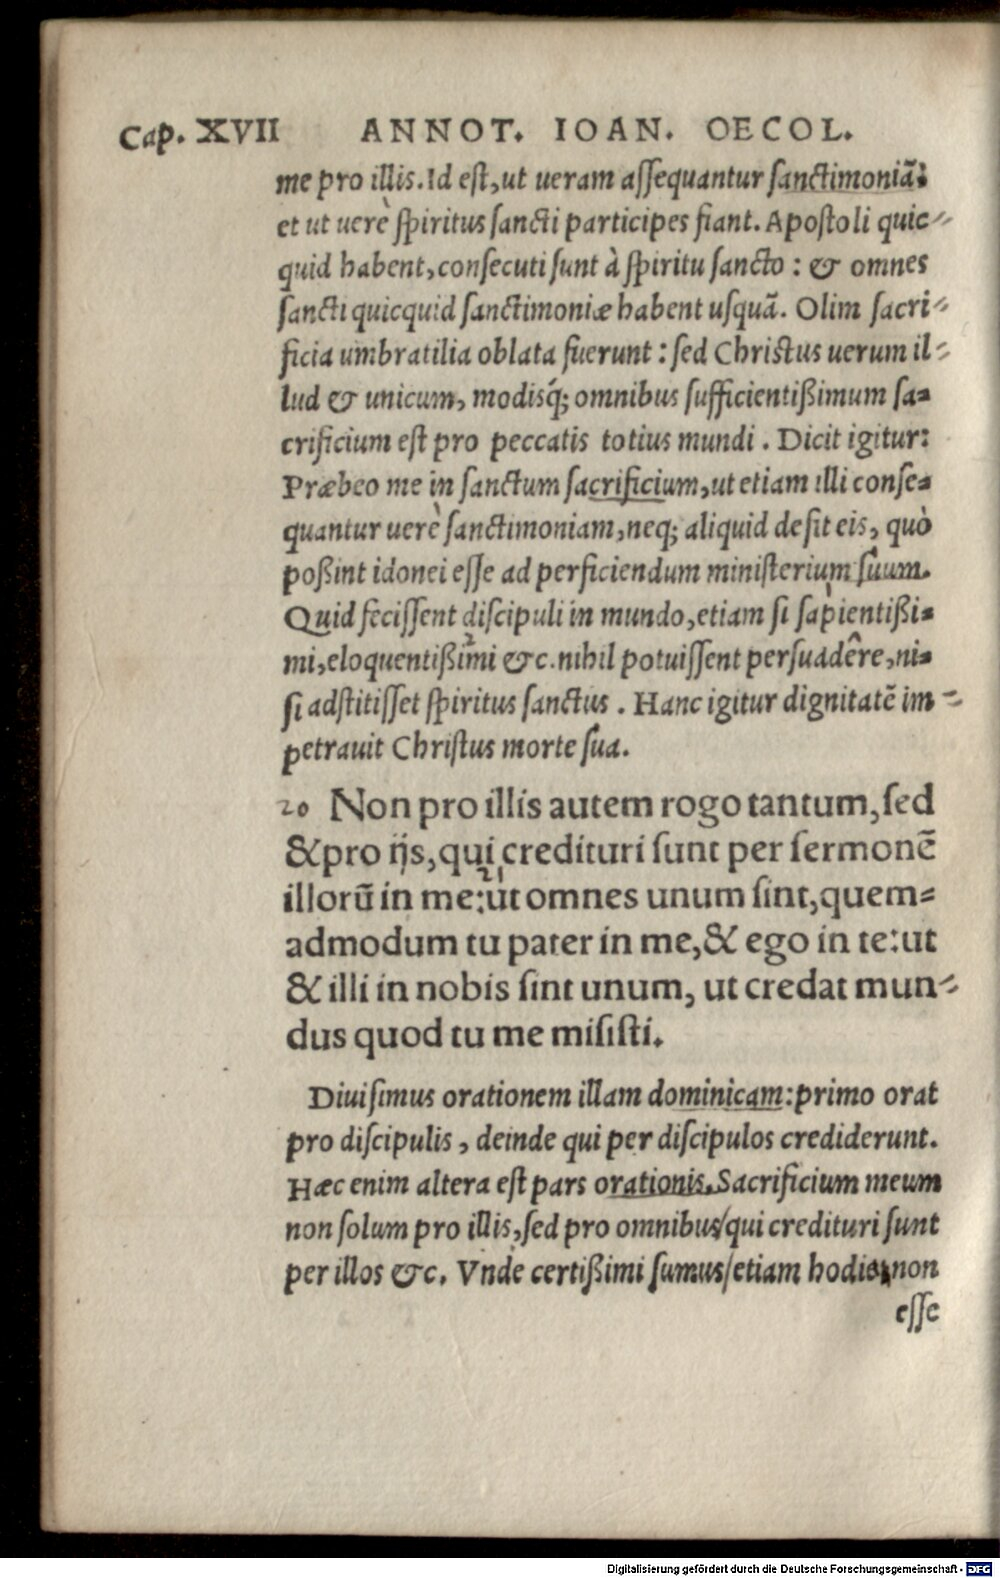 Cap. XVII ANNOT. IOAN. OECOL.
me pro illis. Id est, ut ueram aſſequantur ſanctimoniã:
et ut uerè ſpiritus ſancti participes fiant. Apoſtoli quic-
quid habent, conſecuti ſunt à ſpiritu ſancto : & omnes
ſancti quicquid ſanctimoniæ habent uſquã. Olim ſacri-
ficia umbratilia oblata fuerunt : ſed Chriſtus uerum il-
lud & unicum, modisq́; omnibus ſufficientißimum ſa-
crificium eſt pro peccatis totius mundi . Dicit igitur:
Præbeo me in ſanctum ſacrificium, ut etiam illi conſe-
quantur uerè ſanctimoniam, neq; aliquid deſit eis, quò
poßint idonei eſſe ad perficiendum miniſterium ſuum.
Quid feciſſent diſcipuli in mundo, etiam ſi ſapientißi-
mi, eloquentißimi &c. nihil potuiſſent perſuadêre, ni-
ſi adſtitiſſet ſpiritus ſanctus . Hanc igitur dignitatẽ im-
petrauit Chriſtus morte ſua.
20 Non pro illis autem rogo tantum, ſed
& pro ijs, qui credituri ſunt per ſermonẽ
illorũ in me: ut omnes unum ſint, quem-
admodum tu pater in me, & ego in te: ut
& illi in nobis ſint unum, ut credat mun-
dus quod tu me miſiſti.
Diuiſimus orationem illam dominicam: primo orat
pro diſcipulis, deinde qui per diſcipulos crediderunt.
Hæc enim altera eſt pars orationis. Sacrificium meum
non ſolum pro illis, ſed pro omnibus/ qui credituri ſunt
per illos &c. Vnde certißimi ſumus/ etiam hodie, non
eſſe
Digitalisierung gefördert durch die Deutsche Forschungsgemeinschaft - DFG